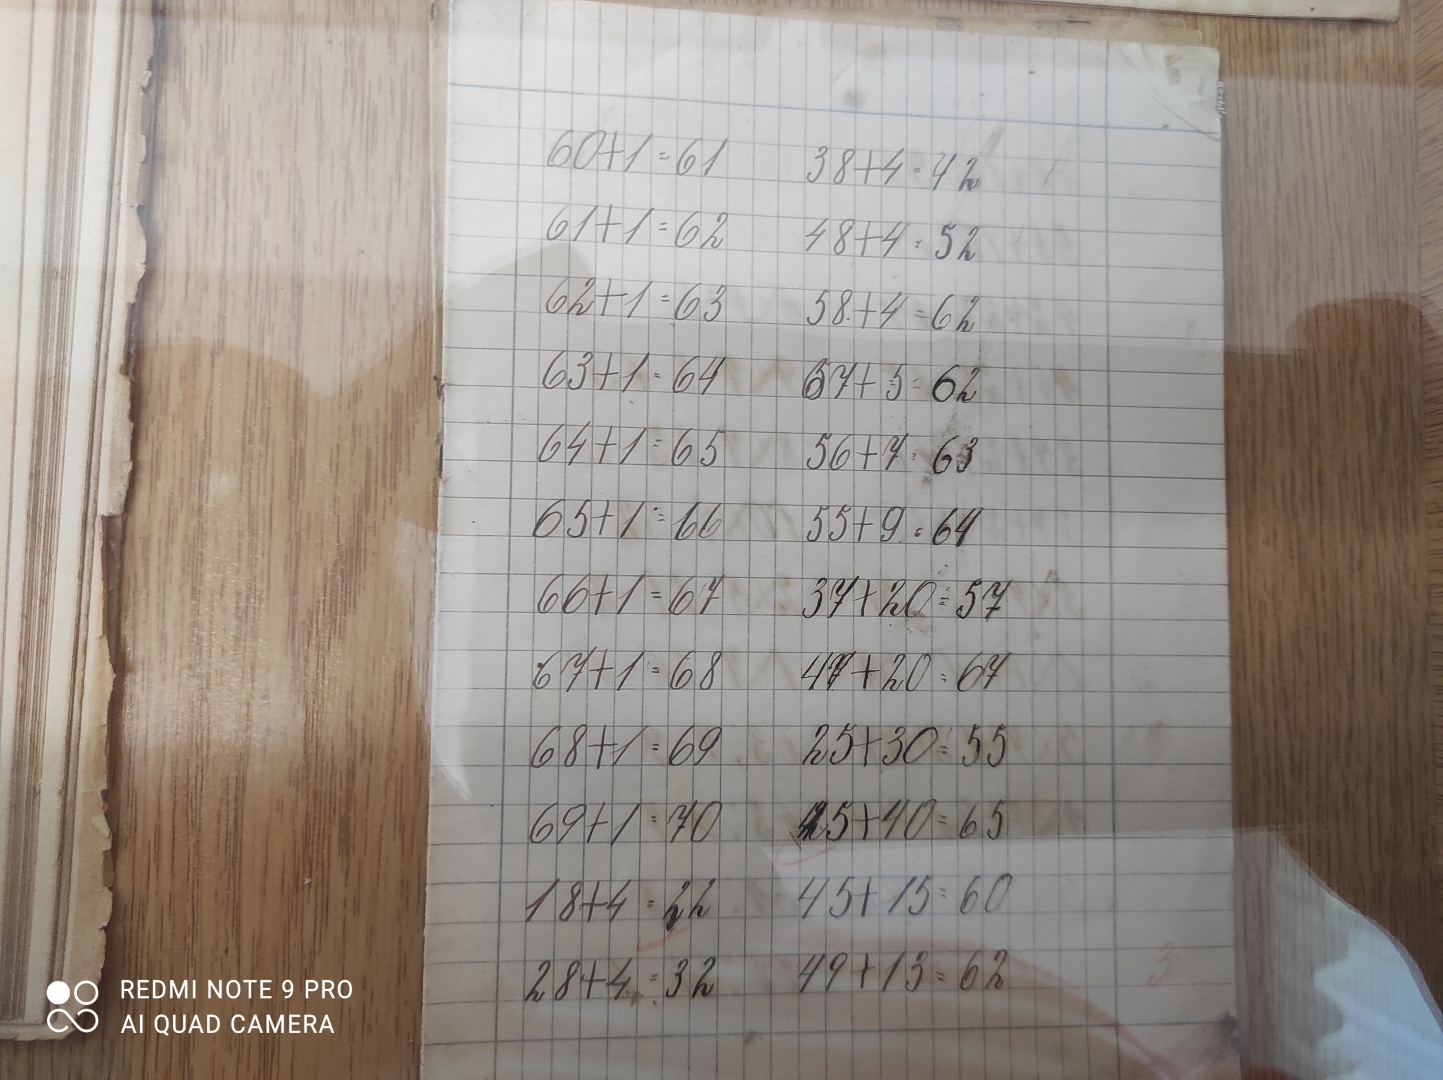 60+1=61
61+1=62
62+1=63
63+1=64
64+1=65
65+1=66
66+1=67
67+1=68
68+1=69
69+1=70
18+4=22
28+4=32
38+4=42
48+4=52
58+4=62
57+5=62
56+7=63
55+9=64
37+20=57
47+20=67
25+30=55
25+40=65
45+15=60
49+13=62
3
REDMI NOTE 9 PRO
AI QUAD CAMERA